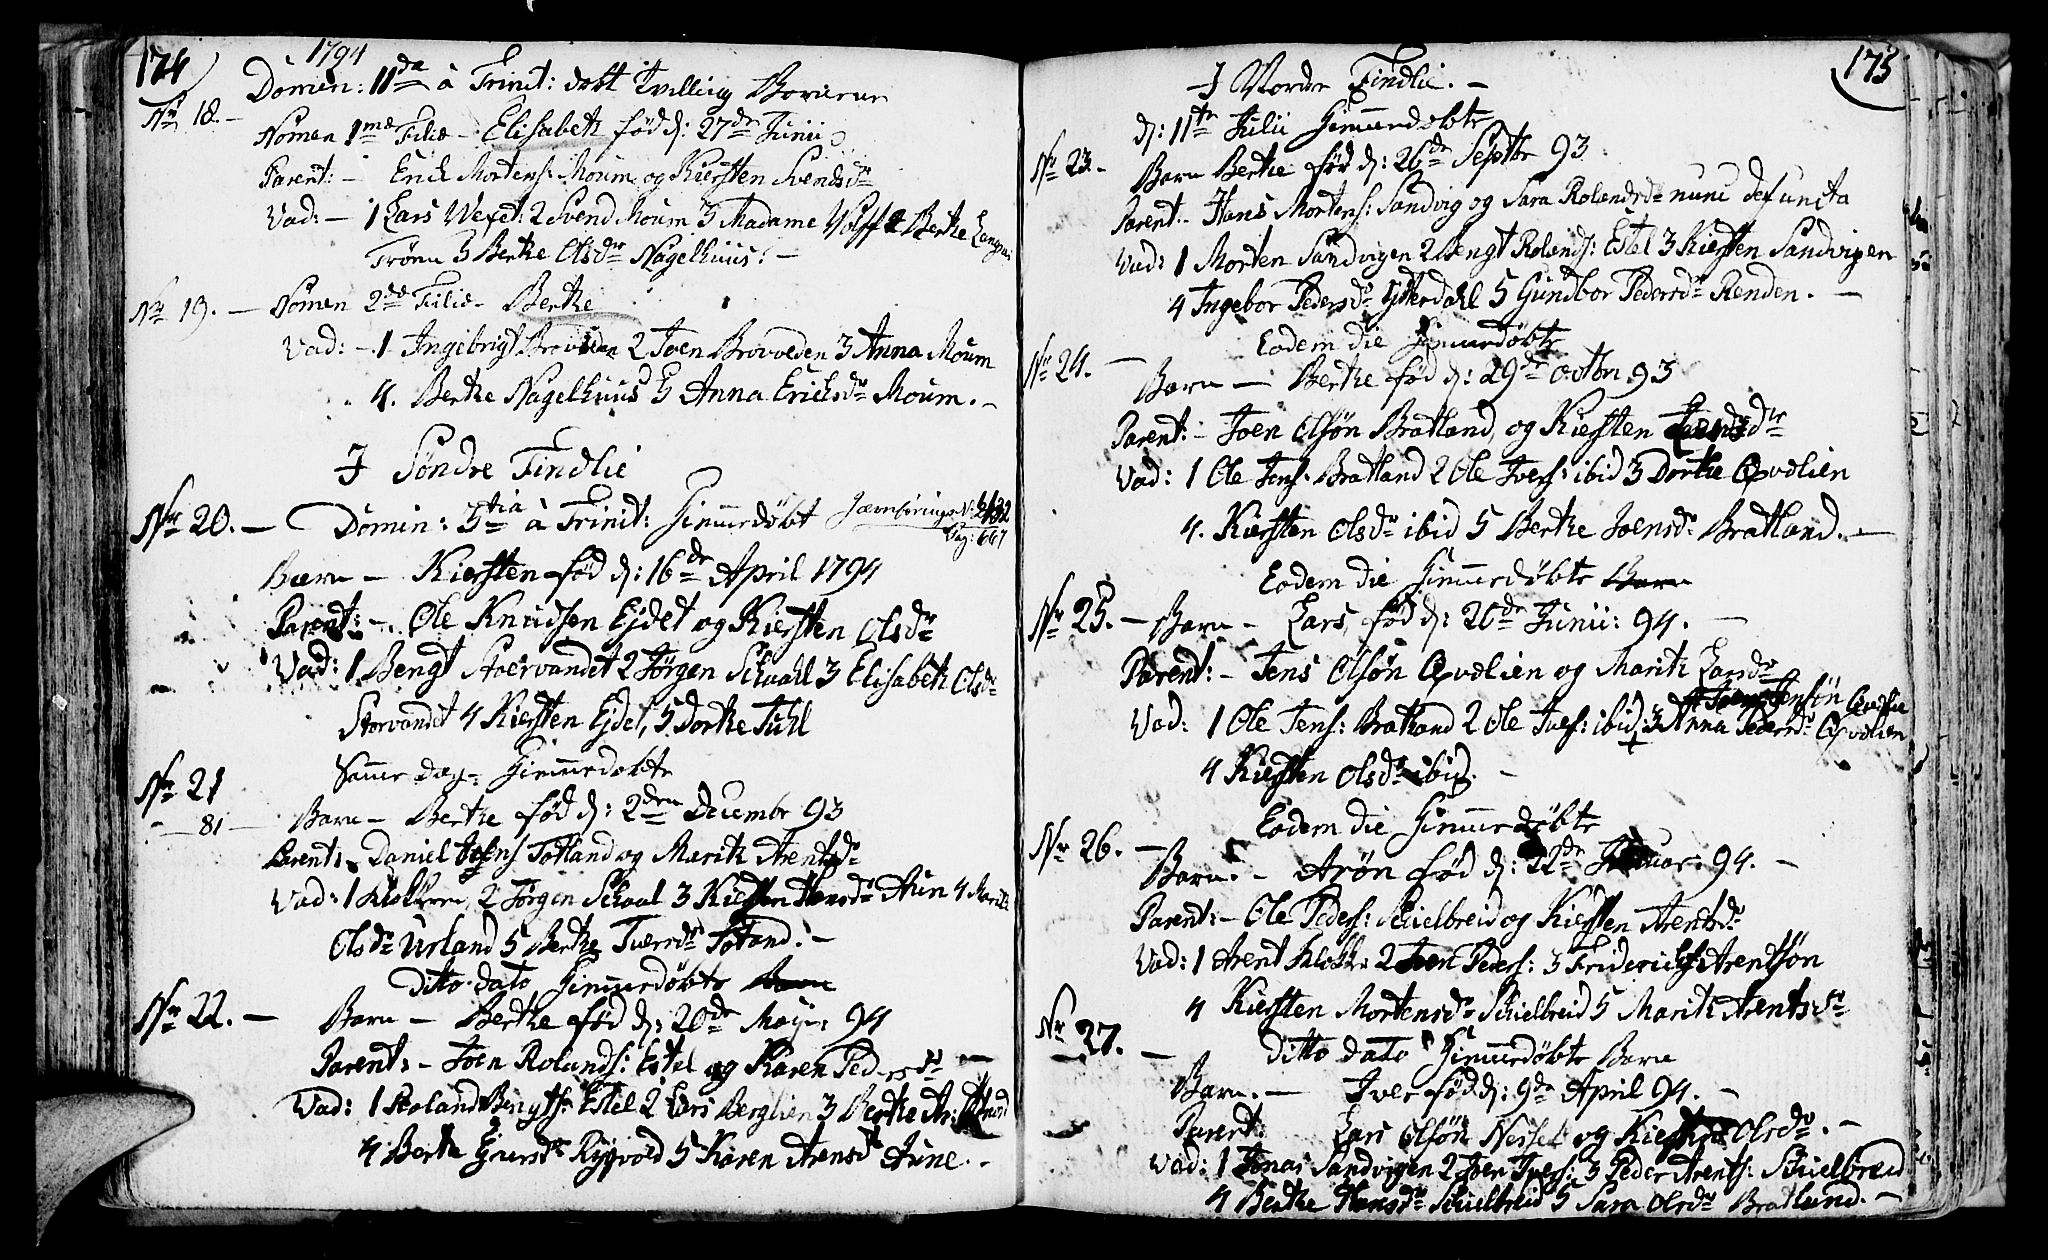 174
1794
Domin: 11da à Trinit: døbt Tvilling Børnene
No 18. -
Nomen 1mæ Filiæ - Elisabeth fød d: 27de Junii
Parent: - Erich Mortens: Moum og Kiersten Svendsdr
Vad: - 1 Lars Wexet: 2 Svend Moum 3 Madame Wolff 4 Berthe
Trøen 5 Berthe Olsdr Nagelhuus: -
No 19. - Nomen 2dæ Filiæ - Berthe
Vad: - 1 Ingebrigt Brovolden 2 Joen Brovolden 3 Anna Moum
4. Berthe Nagelhuus 5 Anna Erichsdr Moum. -
I Søndre Findlie
No 20. - Domin: 5tia à Trinit: Hiemmedøbt
Pag: 667
Barn - Kiersten fød d: 16de April 1794
Parent: - Ole Knudsen Ejdet og Kiersten Olsdr
Vad: 1 Bengt Storvandet 2 Jørgen Schaal 3 Elisabeth Olsdr
Storvandet 4 Kiersten Ejdet, 5 Dorthe Juhl
No 21
Samme Dag - Hiemmedøbte
- 81 -
Barn - Berthe fød d: 2den Decembr 93
Parent: - Daniel Totland og Marith Arentsdr
Vad: 1 Klokkeren, 2 Jørgen Schaal 3 Kiersten Hansdr Aun 4 Marith
Olsdr Urland 5 Berthe Iversdr Totland. -
Ditto dato Hiemmedøbte Barn
No 22. - Barn - Berthe fød d: 20de Maji: 94
Parent: - Joen Rolands: Estel og Karen Pedersdr -
Vad: 1 Roland Bengts: Estel 2 Lars Berglien 3 Berthe
4 Berthe Rygvold 5 Karen Arensdr Aune. -
175
I Nordre Findlie. -
d: 11te Julii Hiemmedøbte
No 23. - Barn Berthe fød d: 26de Septbr 93
Parent: - Hans Mortens: Sandvig og Sara Rolandsdr nunc defuncta
Vad: 1 Morten Sandvigen 2 Bengt Rolands: Estel 3 Kiersten Sandvigen
4 Ingebor Pedersdr Ytterdahl 5 Gundbor Pedersdr Renden. -
Eodem die Hiemmedøbte
No 24. -
Barn - Berthe fød d: 29de Octbr 93
Parent: - Joen Olsøn Bratland, og Kiersten
Vad: 1 Ole Jens: Bratland 2 Ole Ivers: ibid 3 Dorthe Qvolien
4. Kiersten Olsdr ibid 5 Berthe Joensdr Bratland. -
Eodem die Hiemmedøbte Barn
No 25. - Barn - Lars, fød d: 20de Junii: 94. -
Parent: - Jens Olsøn Qvolien og Marith Larsdr
Vad: 1 Ole Jens: Bratland 2 Ole Ivers: ibid: 3 Anna Pedersdr Qvolien
4 Kiersten Olsdr ibid. -
Eodem die Hiemmedøbte
No 26. -
Barn. - Arøn fød d: 22de Januar: 94. -
Parent: - Ole Peders: Schielbreid og Kiersten Arentsdr
Vad: 1 Arent Klokk: 2 Joen Peders: 3 Friderich Arentsøn
4 Kiersten Mortensdr Schielbreid 5 Marith Arentsdr
No 27. -
Ditto dato Hiemmedøbte Barn
Barn. - Iver fød d: 9de April 94. -
Parent: Lars Olsøn Nesset og Kiersten Olsdr. -
Vad: 1 Jonas Sandvigen 2 Joen Ivers: 3 Peder Arents: Schielbreid
4 Berthe Hansdr Schielbreid 5 Sara Olsdr Bratland. -